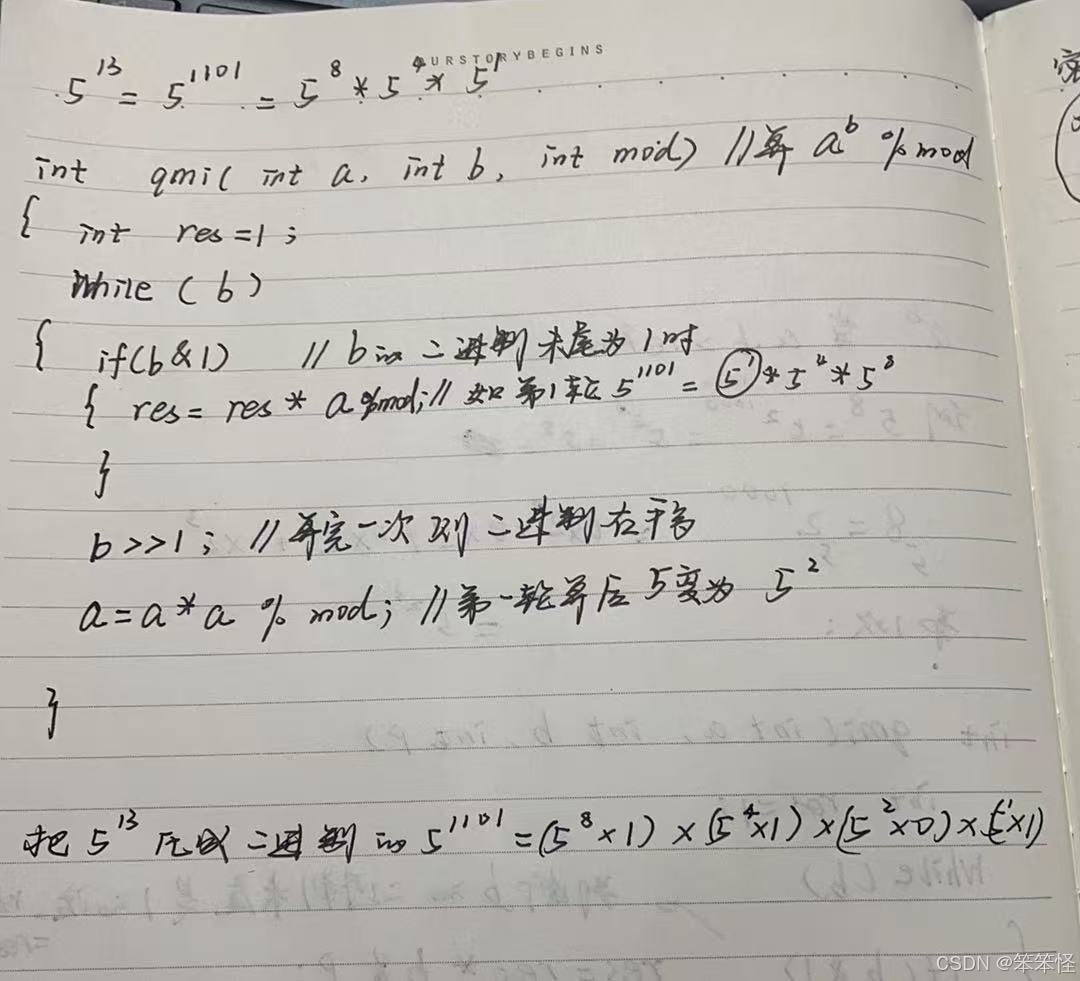 OURSTORYBEGINS
5^13 = 5^1101 = 5^8 * 5^4 * 5^1
int qmi( int a, int b, int mod) //算 a^b % mod
{ int res=1;
While (b)
{ if(b&1) // b的二进制末尾为1时
{ res= res * a %mod; // 如第1轮 5^1101 = 5^1 * 5^4 * 5^8
}
b>>1; //算完一次 则二进制右于移
a=a*a % mod; //第一轮算后 5变为 5^2
}
把 5^13 化成二进制的 5^1101 = (5^8×1) × (5^4×1) × (5^2×0) × (5^1×1)
CSDN @笨笨怪